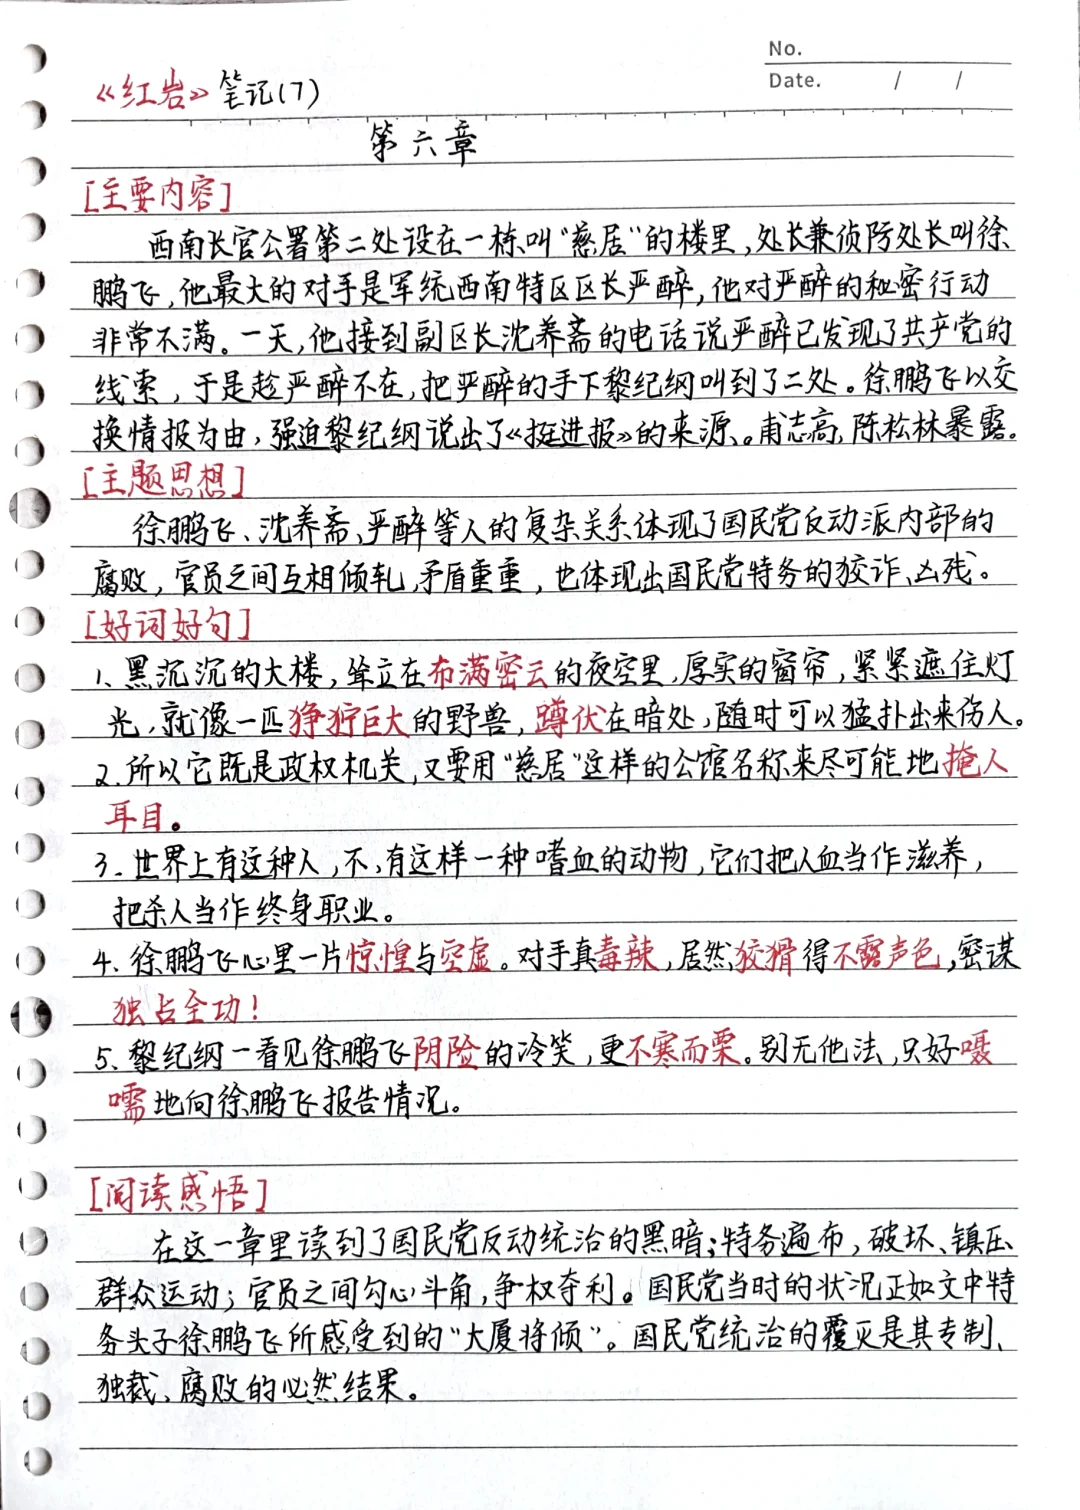 No.
Date. / /
《红岩》笔记(7)
第六章
[主要内容]
西南长官公署第二处设在一栋叫“慈居”的楼里,处长兼侦防处长叫徐
鹏飞,他最大的对手是军统西南特区区长严醉,他对严醉的秘密行动
非常不满。一天,他接到副区长沈养斋的电话说严醉已发现了共产党的
线索,于是趁严醉不在,把严醉的手下黎纪纲叫到了二处。徐鹏飞以交
换情报为由,强迫黎纪纲说出了《挺进报》的来源、。甫志高,陈松林暴露。
[主题思想]
徐鹏飞、沈养斋、严醉等人的复杂关系体现了国民党反动派内部的
腐败,官员之间互相倾轧,矛盾重重,也体现出国民党特务的狡诈、凶残。
[好词好句]
1、黑沉沉的大楼,耸立在布满密云的夜空里,厚实的窗帘,紧紧遮住灯
光,就像一匹狰狞巨大的野兽,蹲伏在暗处,随时可以猛扑出来伤人。
2.所以它既是政权机关,又要用“慈居”这样的公馆名称来尽可能地掩人
耳目。
3.世界上有这种人,不,有这样一种嗜血的动物,它们把人血当作滋养,
把杀人当作终身职业。
4、徐鹏飞心里一片惊惶与空虚。对手真毒辣,居然狡猾得不露声色,密谋
独占全功!
5、黎纪纲一看见徐鹏飞阴险的冷笑,更不寒而栗。别无他法,只好嗫
嚅地向徐鹏飞报告情况。
[阅读感悟]
在这一章里读到了国民党反动统治的黑暗;特务遍布,破坏、镇压
群众运动;官员之间勾心斗角,争权夺利。国民党当时的状况正如文中特
务头子徐鹏飞所感受到的“大厦将倾”。国民党统治的覆灭是其专制、
独裁、腐败的必然结果。